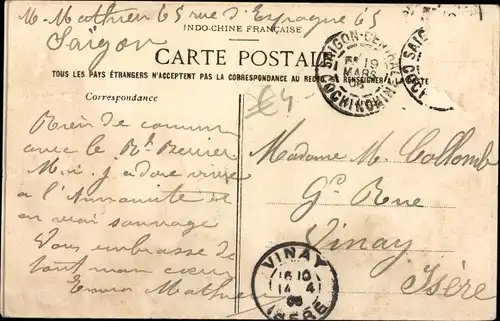 M. Mathieu 65 rue d'Espagne 65
Saïgon
INDO-CHINE FRANÇAISE
CARTE POSTALE
TOUS LES PAYS ÉTRANGERS N'ACCEPTENT PAS LA CORRESPONDANCE AU RECTO SE RENSEIGNER A LA POSTE
SAIGON-CENTRAL
19
MARS
COCHINCHINE
SAIG
COCH
Correspondance
€4
Rien de commun
avec le
j'adore vivre
a l'Annamite et
en vrai sauvage
Vous embrasse de
tout mon cœur
Mathieu
Madame M. Collomb
Gde Rue
Vinay
Isère
VINAY
16 10
14 4
ISERE